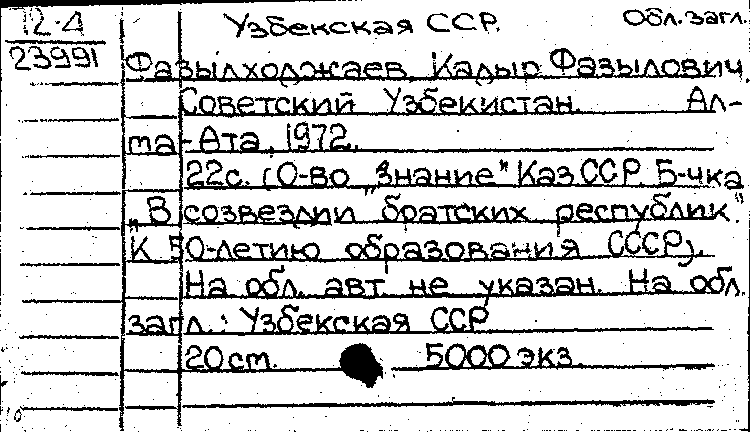 72-4
23991
Узбекская ССР.
Обл. загл.
Фазылходжаев, Кадыр Фазылович.
Советский Узбекистан. Ал-
ма-Ата, 1972.
22с. (О-во „Знание" Каз.ССР. Б-чка
„В созвездии братских республик."
К 50-летию образования СССР).
На обл. авт. не указан. На обл.
загл.: Узбекская ССР.
20 см. 5000 экз.